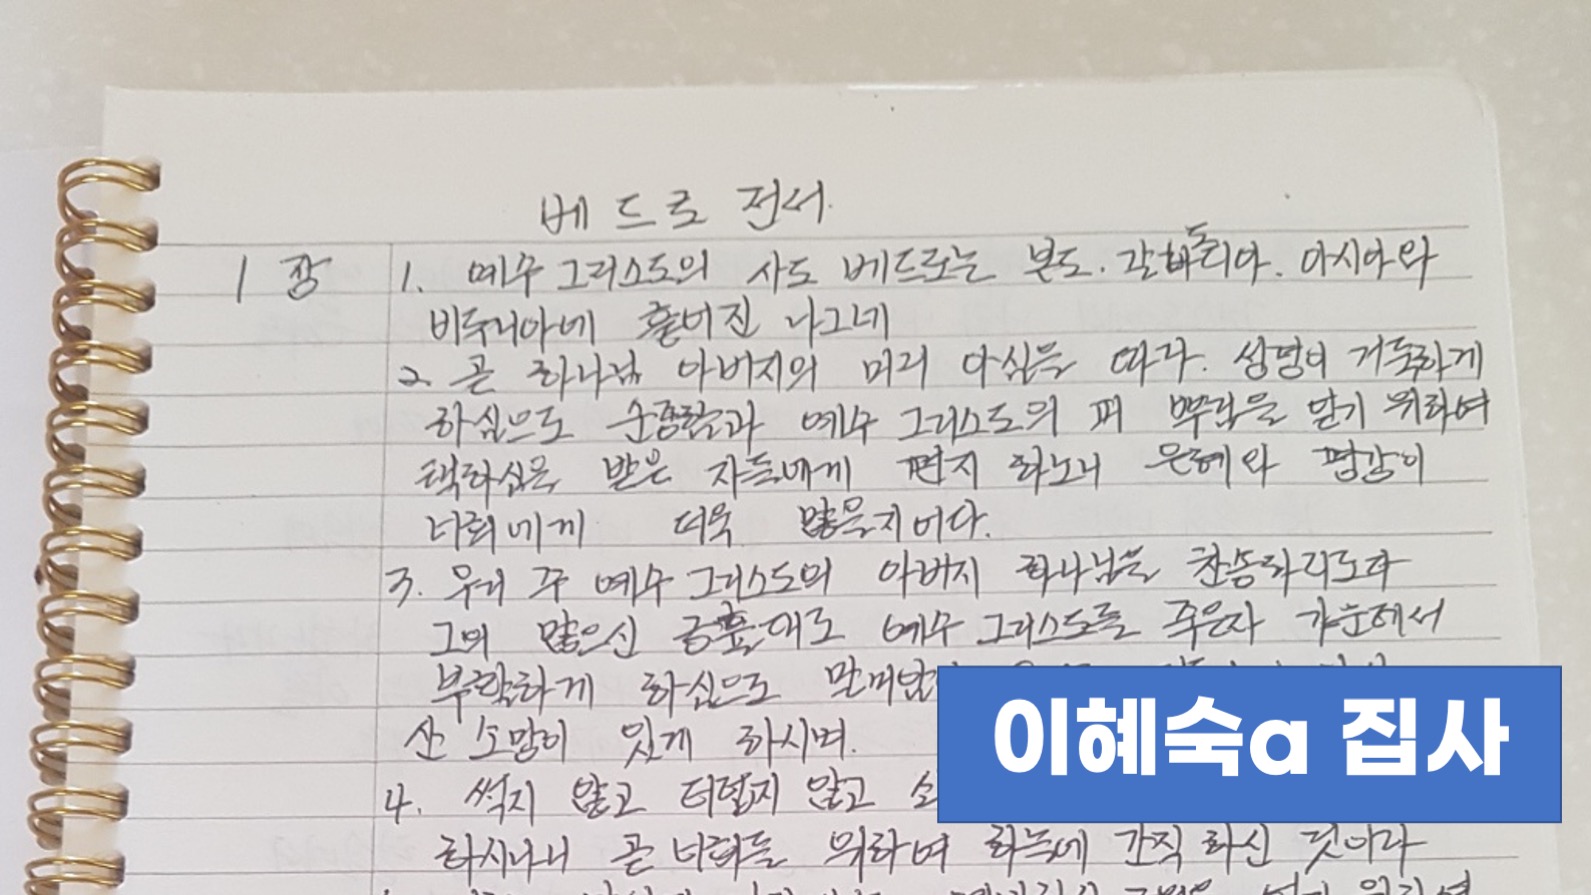 베드로 전서.
1 장 1. 예수 그리스도의 사도 베드로는 본도. 갑바도리아. 아시아와
비두니아에 흩어진 나그네
2. 곧 하나님 아버지의 미리 아심을 따라. 성령이 거룩하게
하심으로 순종함과 예수 그리스도의 피 뿌림을 얻기 위하여
택하심을 받은 자들에게 편지 하노니 은혜와 평강이
너희에게 더욱 많을지어다.
3. 우리 주 예수 그리스도의 아버지 하나님을 찬송하리로다
그의 많으신 긍휼대로 예수 그리스도를 죽은자 가운데서
부활하게 하심으로 말미암아
산 소망이 있게 하시며.
4. 썩지 않고 더럽지 않고
하시나니 곧 너희를 위하여 하늘에 간직 하신 것이라
이혜숙a 집사